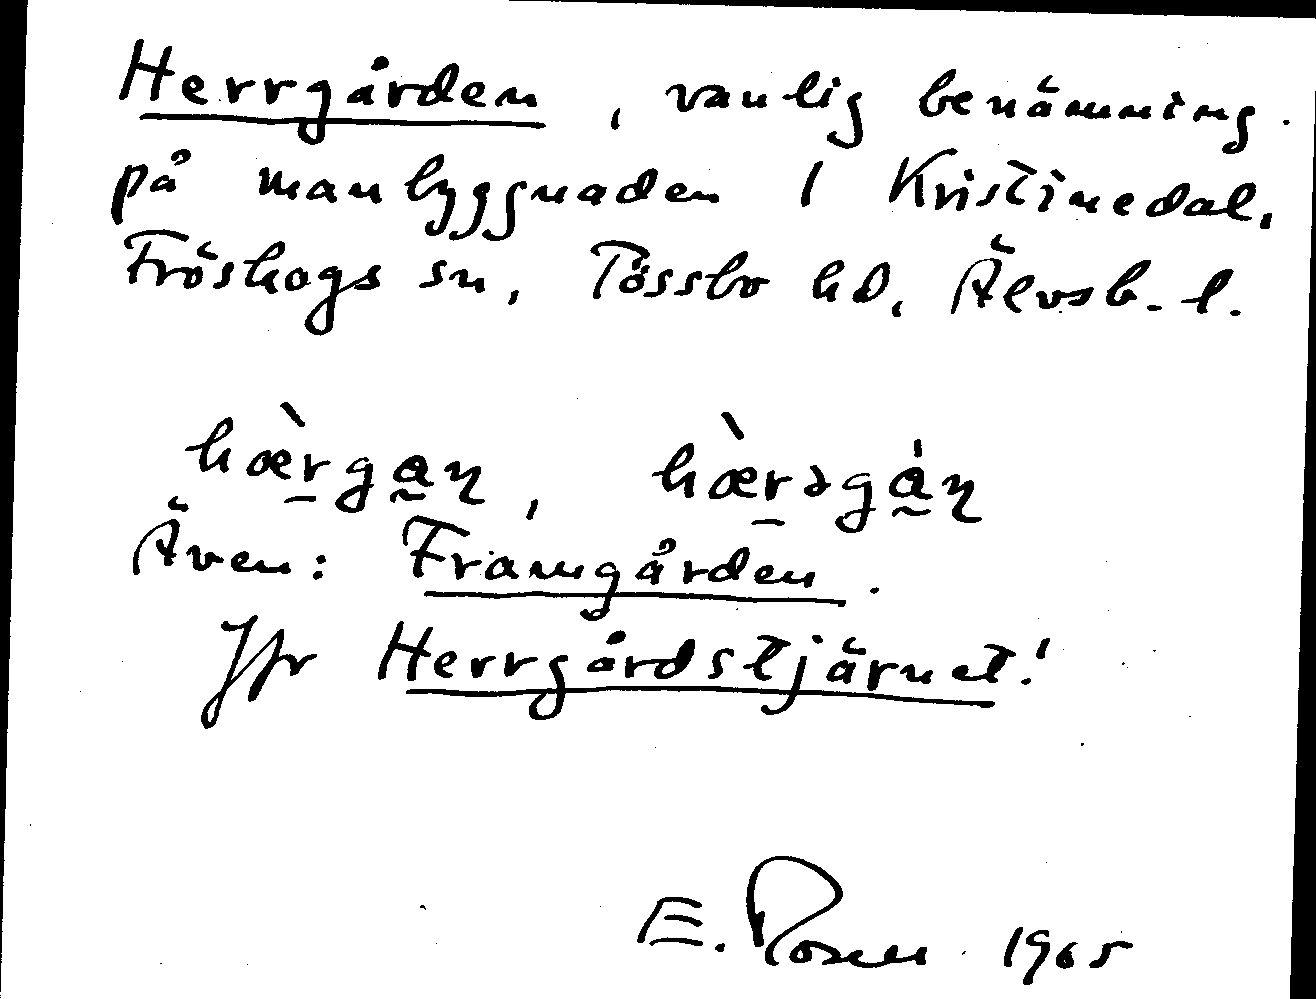 Herrgården, vanlig benämning
på manbyggnaden i Kristinedal,
Fröskogs sn, Tössbo hd, Älvsb. l.
hæ̀r̠ga̰ɳ, hæ̀r̠əgá̰ɳ
Även: Framgården.
Jfr Herrgårdstjärnet!
E. Rosen 1965